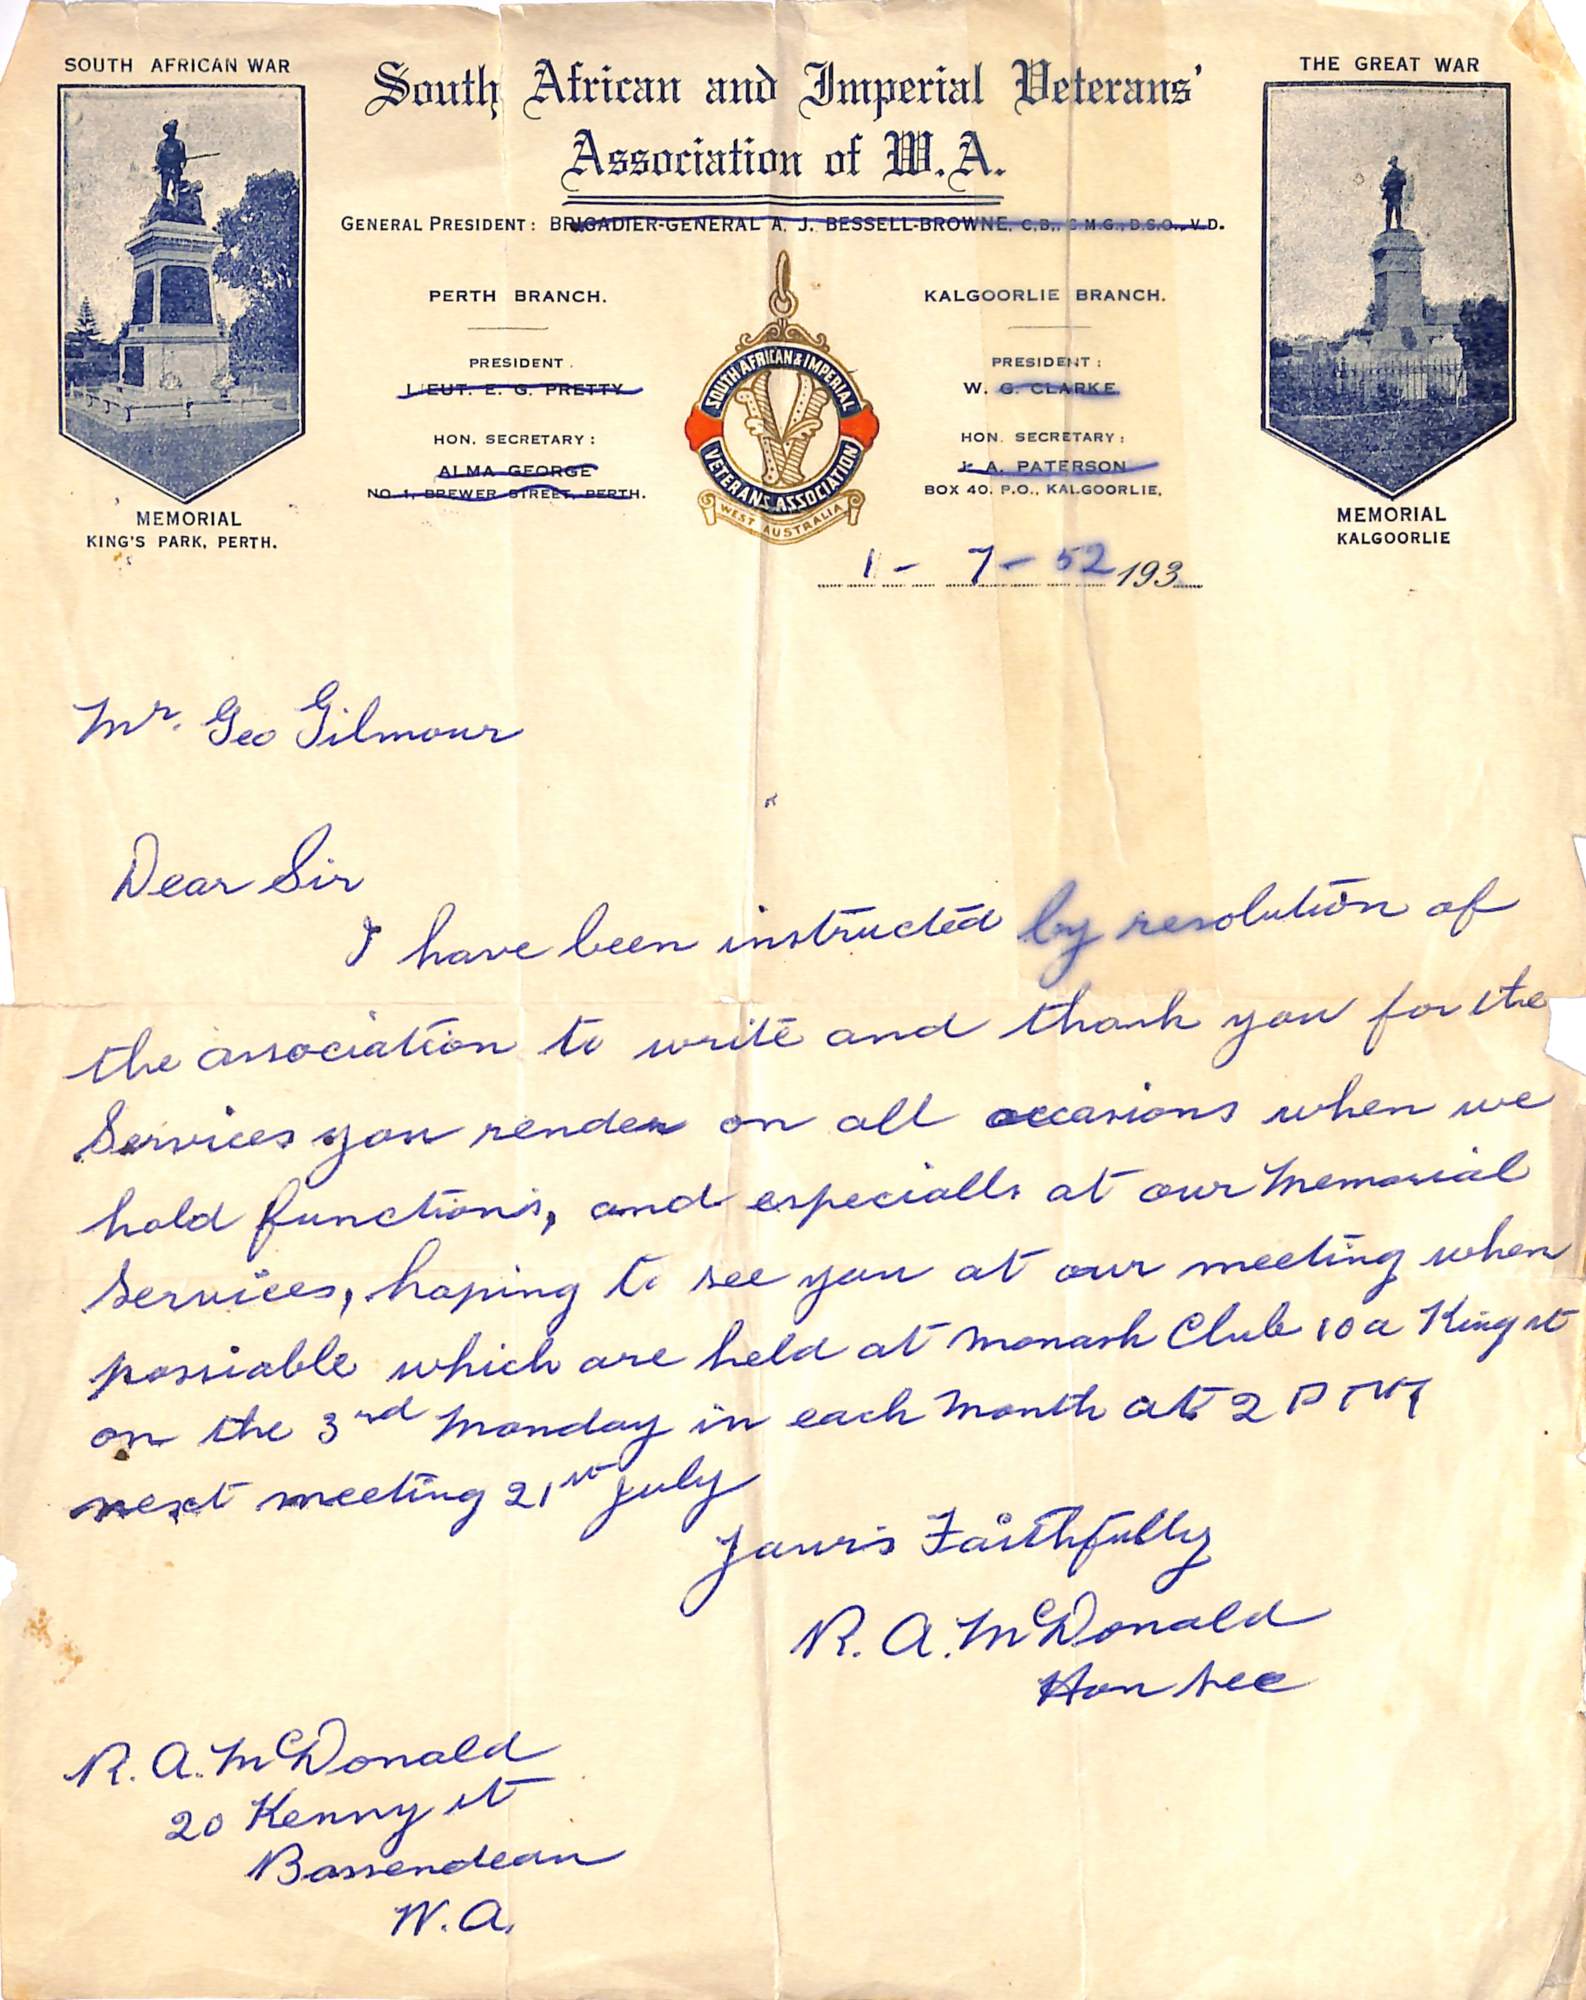 SOUTH AFRICAN WAR
THE GREAT WAR
South African and Imperial Veterans'
Association of W.A.
GENERAL PRESIDENT: BRIGADIER-GENERAL A. J. BESSELL-BROWNE, C.B., C.M.G., D.S.O., V.D.
PERTH BRANCH.
PRESIDENT.
LIEUT. E. G. PRETTY
HON. SECRETARY:
ALMA GEORGE
NO. 1, BREWER STREET, PERTH.
SOUTH AFRICAN & IMPERIAL
VETERANS ASSOCIATION
WEST AUSTRALIA
KALGOORLIE BRANCH.
PRESIDENT:
W. G. CLARKE
HON. SECRETARY:
J. A. PATERSON
BOX 40, P.O., KALGOORLIE.
MEMORIAL
KING'S PARK, PERTH.
MEMORIAL
KALGOORLIE
1 - 7 - 52 193
Mr. Geo Gilmour
Dear Sir
I have been instructed by resolution of
the association to write and thank you for the
Services you render on all occasions when we
hold functions, and especially at our Memorial
Services, hoping to see you at our meeting when
possiable which are held at Monash Club 10a King st
on the 3rd Monday in each Month at 2 PM
next meeting 21st July
Your's Faithfully
R. A. McDonald
Hon Sec
R. A. McDonald
20 Kenny st
Bassendean
W. A.